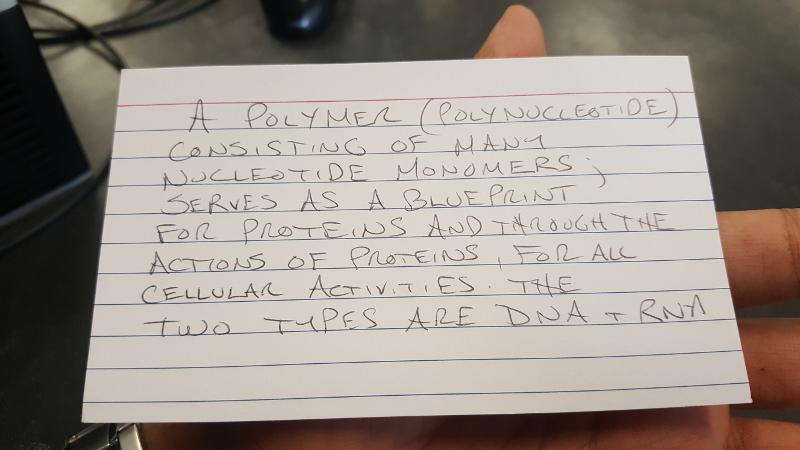 A POLYMER (POLYNUCLEOTIDE)
CONSISTING OF MANY
NUCLEOTIDE MONOMERS;
SERVES AS A BLUEPRINT
FOR PROTEINS AND THROUGH THE
ACTIONS OF PROTEINS, FOR ALL
CELLULAR ACTIVITIES. THE
TWO TYPES ARE DNA + RNA